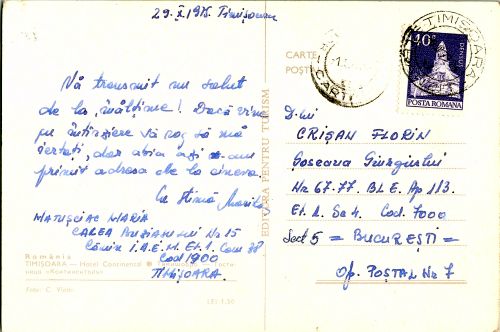 29.X.1975. Timișoara
Vă transmit un salut
de la "înălțime"! Dacă vine
cu întirziere vă rog să mă
iertați, dar abia azi am
primit adresa de la cineva.
Cu stimă Marila
MATUSCIAC MARIA
CALEA BUZIASULUI Nr 15
Cămin I.A.E.M. Et 1. Cam 38
Cod 1900
TIMIȘOARA
România
TIMIȘOARA — Hotel Continental
Foto: C.
LEI 1,50
EDITURA PENTRU TURISM
CARTE
POȘT
TIMISOARA
40
DENSUȘ
POSTA ROMANA
D-lui
CRIȘAN FLORIN
Șoseaua Giurgiului
Nr 67-77. BL E. Ap 113.
Et. 1. Sc 4. Cod. 7000
Sect 5 = BUCUREȘTI =
Of. POȘTAL Nr 7